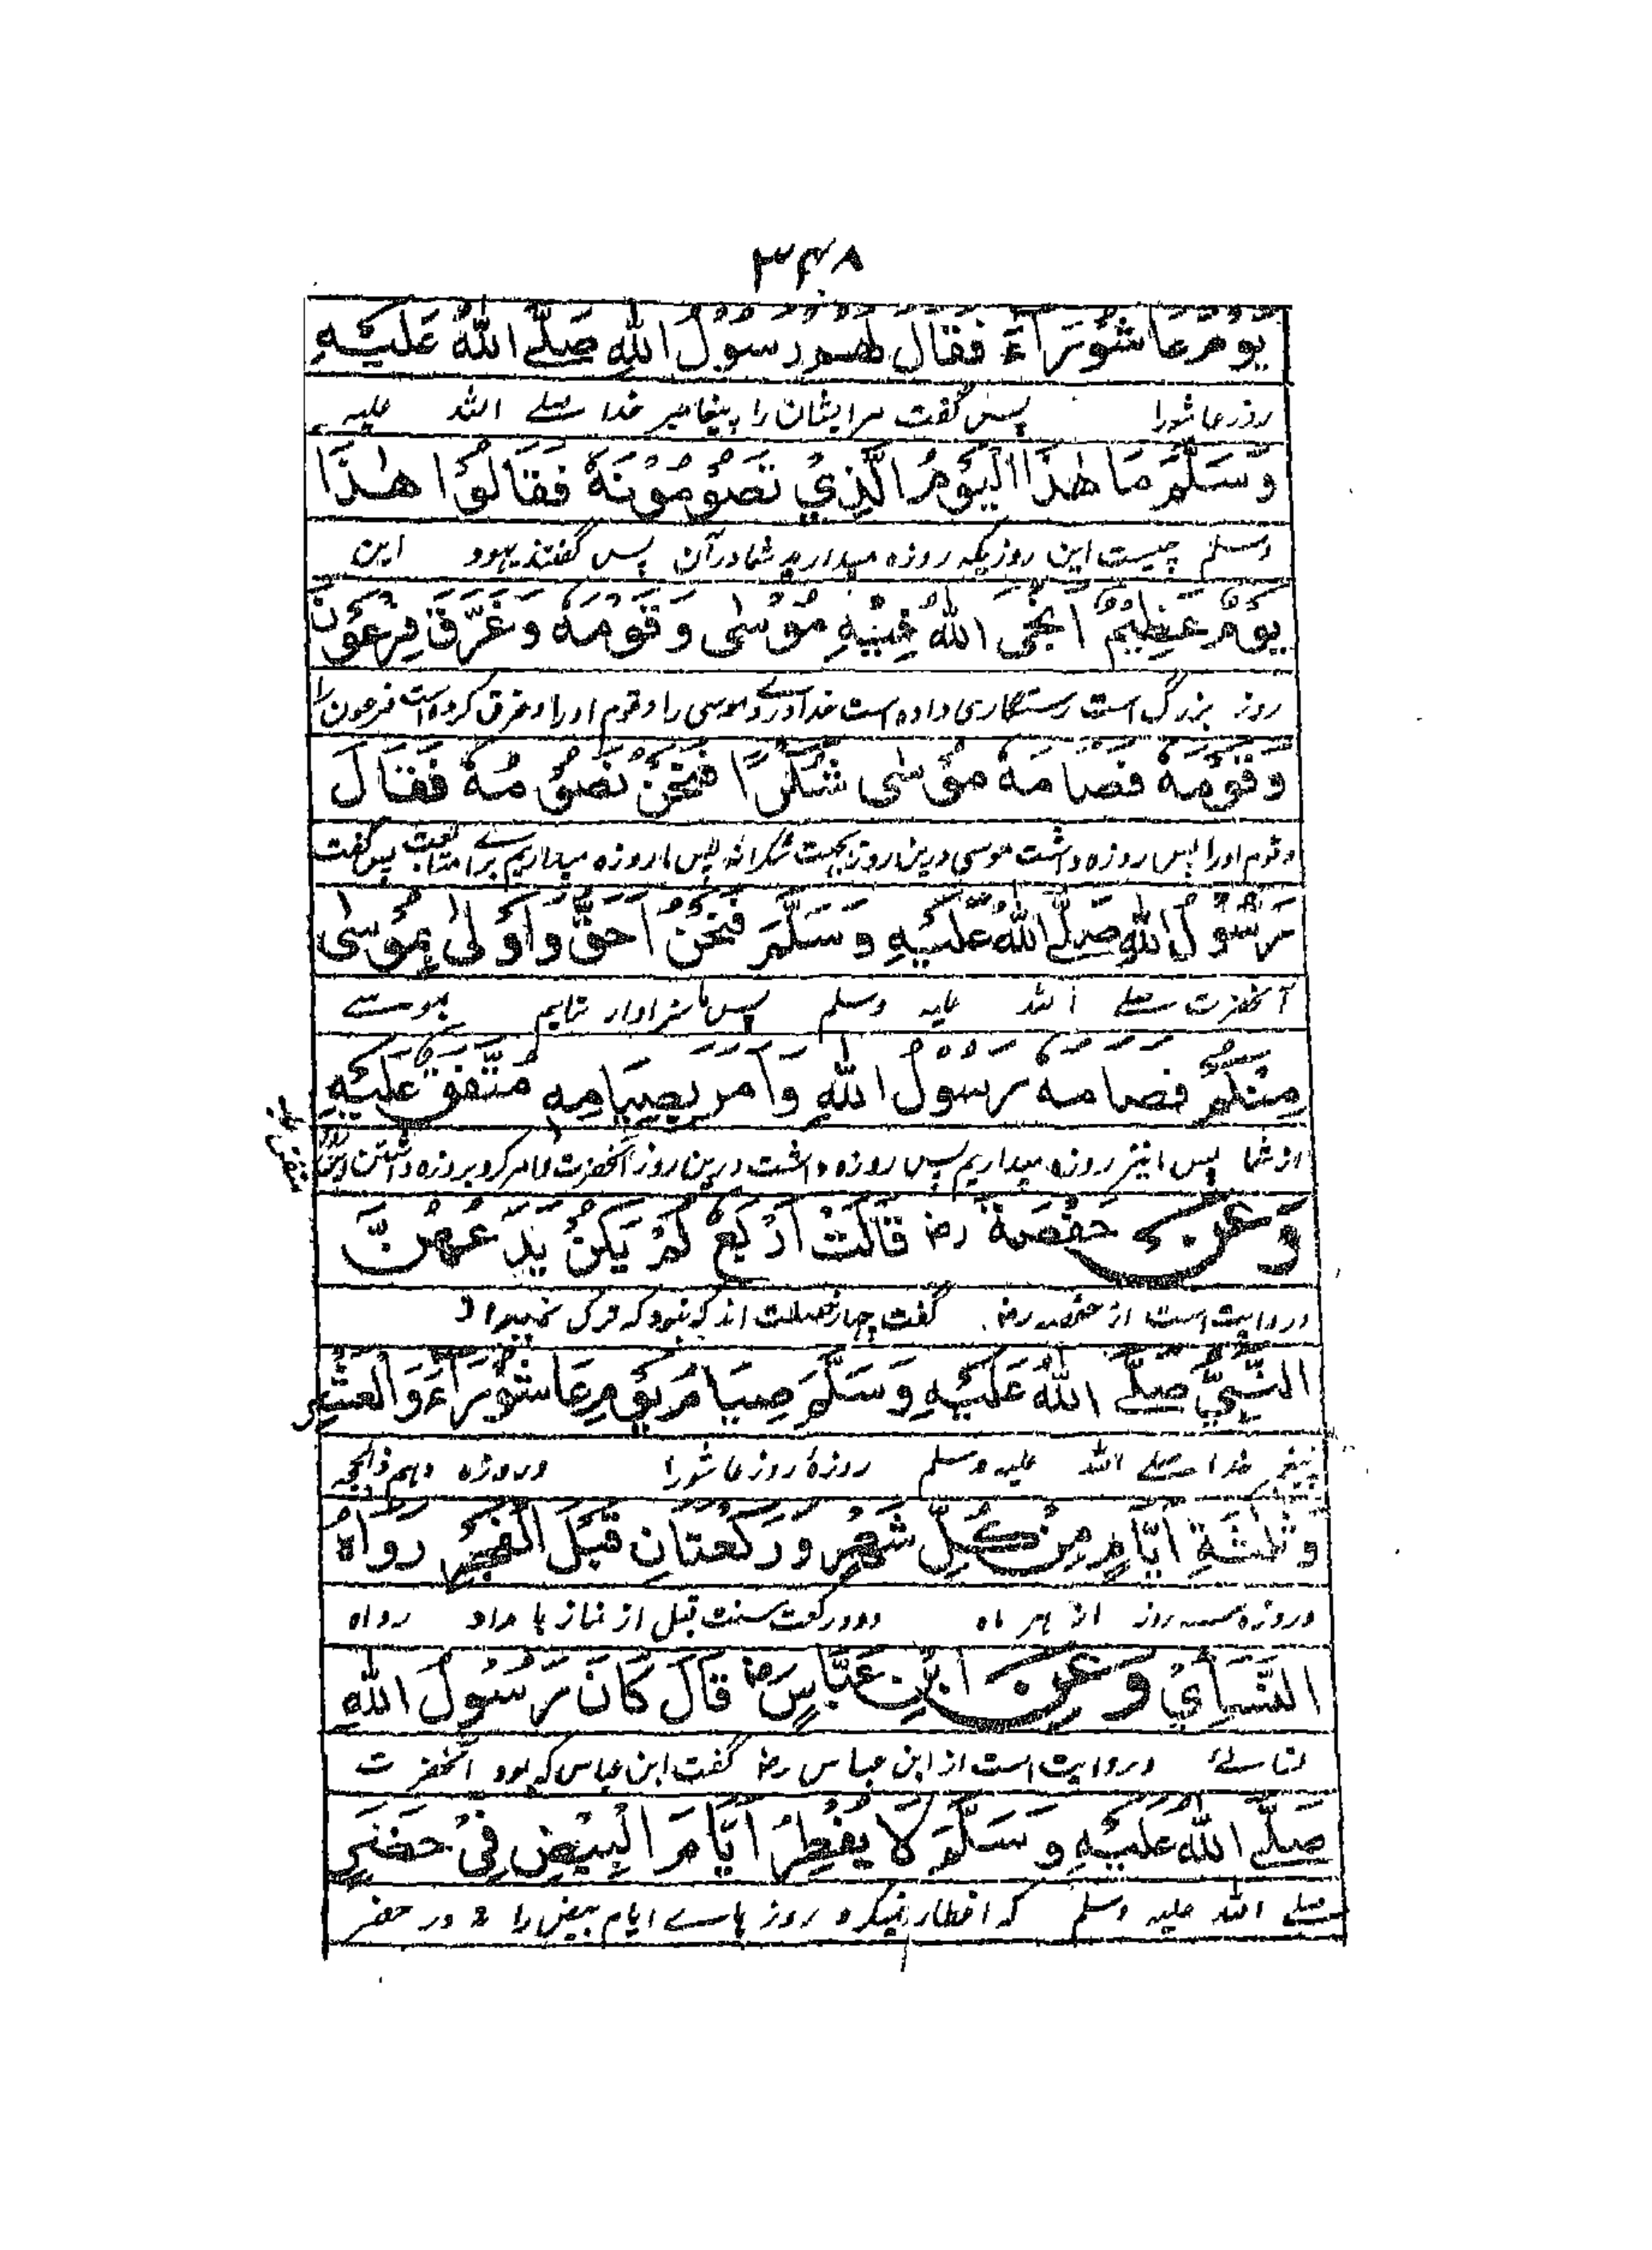 ۳۴۸
يَوْمَ عَاشُوْرَاءَ فَقَالَ لهم رسُوْلُ اللهِ صَلَّے اللهُ عَلَيْهِ
روز عاشورا پس گفت مر ایشان را پیغامبر خدا صلے اللہ علیہ
وَسَلَّمَ مَا هٰذَا الْيَوْمُ الَّذِيْ تَصُوْمُوْنَهٗ فَقَالُوْا هٰذَا
وسلم چیست این روزیکه روزه میدارید شما در آن پس گفتند یهود این
يَوْمٌ عَظِيْمٌ اَنْجَى اللهُ فِيْهِ مُوْسٰى وَقَوْمَهٗ وَغَرَّقَ فِرْعَوْنَ
روز بزرگ است رستگاری داده است خدا درو موسی را و قوم او را و غرق کرده است فرعون را
وَقَوْمَهٗ فَصَامَهٗ مُوْسٰى شُكْرًا فَنَحْنُ نَصُوْمُهٗ فَقَالَ
و قوم او را پس روزه داشت موسی درین روز بجهت شکرانه پس ما روزه میداریم برای متابعت پس گفت
رَسُوْلُ اللهِ صَلَّے اللهُ عَلَيْهِ وَسَلَّمَ فَنَحْنُ اَحَقُّ وَاَوْلٰى بِمُوْسٰى
آنحضرت صلے اللہ علیہ وسلم پس ما سزاوار تایم بموسے
مِنْكُمْ فَصَامَهٗ رَسُوْلُ اللهِ وَاَمَرَ بِصِيَامِهٖ مُتَّفَقٌ عَلَيْهِ
از شما پس نیز روزه میداریم پس روزه داشت درین روز آنحضرت و امر کرد بروزه داشتن این روز
وَعَنْ حَفْصَةَ رض قَالَتْ اَرْبَعٌ لَمْ يَكُنْ يَدَعُهُنَّ
و روایت است از حفصه رض گفت چهار خصلت اند که نبود که ترک
النَّبِيُّ صَلَّے اللهُ عَلَيْهِ وَسَلَّمَ صِيَامَ يَوْمِ عَاشُوْرَاءَ وَالْعَشْرِ
خدا صلے اللہ علیہ وسلم روزهٔ روز عاشورا و روزه دهم ذالحجه
وَثَلٰثَةِ اَيَّامٍ مِنْ كُلِّ شَهْرٍ وَرَكْعَتَانِ قَبْلَ الْفَجْرِ رَوَاهُ
و روزه سه روز از هر ماه و دو رکعت سنت قبل از نماز بامداد رواه
النَّسَائِيُّ وَعَنِ ابْنِ عَبَّاسٍ رض قَالَ كَانَ رَسُوْلُ اللهِ
نسائے و روایت است از ابن عباس رض گفت ابن عباس که بود آنحضرت
صَلَّے اللهُ عَلَيْهِ وَسَلَّمَ لَا يُفْطِرُ اَيَّامَ الْبِيْضِ فِيْ حَضَرٍ
صلے اللہ علیہ وسلم که افطار نمیکرد روز ہاے ایام بیض را در حضر